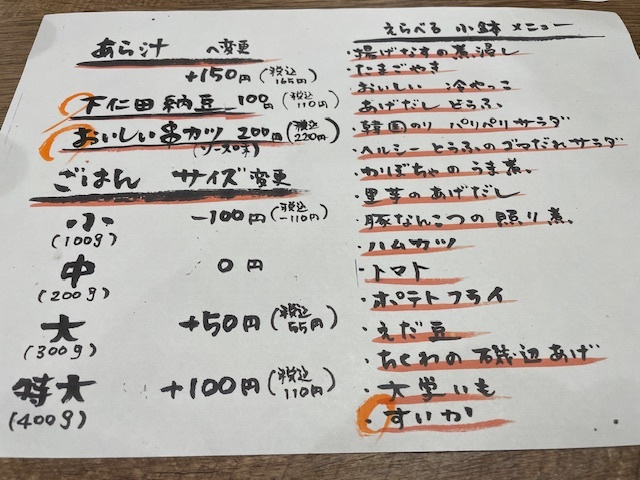 あら汁 へ変更
+150円 (税込165円)
下仁田納豆 100円 (税込110円)
おいしい串カツ 200円 (税込220円)
(ソース味)
ごはん サイズ変更
小 -100円 (税込-110円)
(100g)
中 0円
(200g)
大 +50円 (税込55円)
(300g)
特大 +100円 (税込110円)
(400g)
えらべる 小鉢 メニュー
・揚げなすの煮浸し
・たまごやき
・おいしい 冷やっこ
・あげだし どうふ
・韓国のり パリパリサラダ
・ヘルシーとうふのゴマだれサラダ
・かぼちゃのうま煮
・里芋のあげだし
・豚なんこつの照り煮
・ハムカツ
・トマト
・ポテトフライ
・えだ豆
・ちくわの磯辺あげ
・大学いも
・すいか